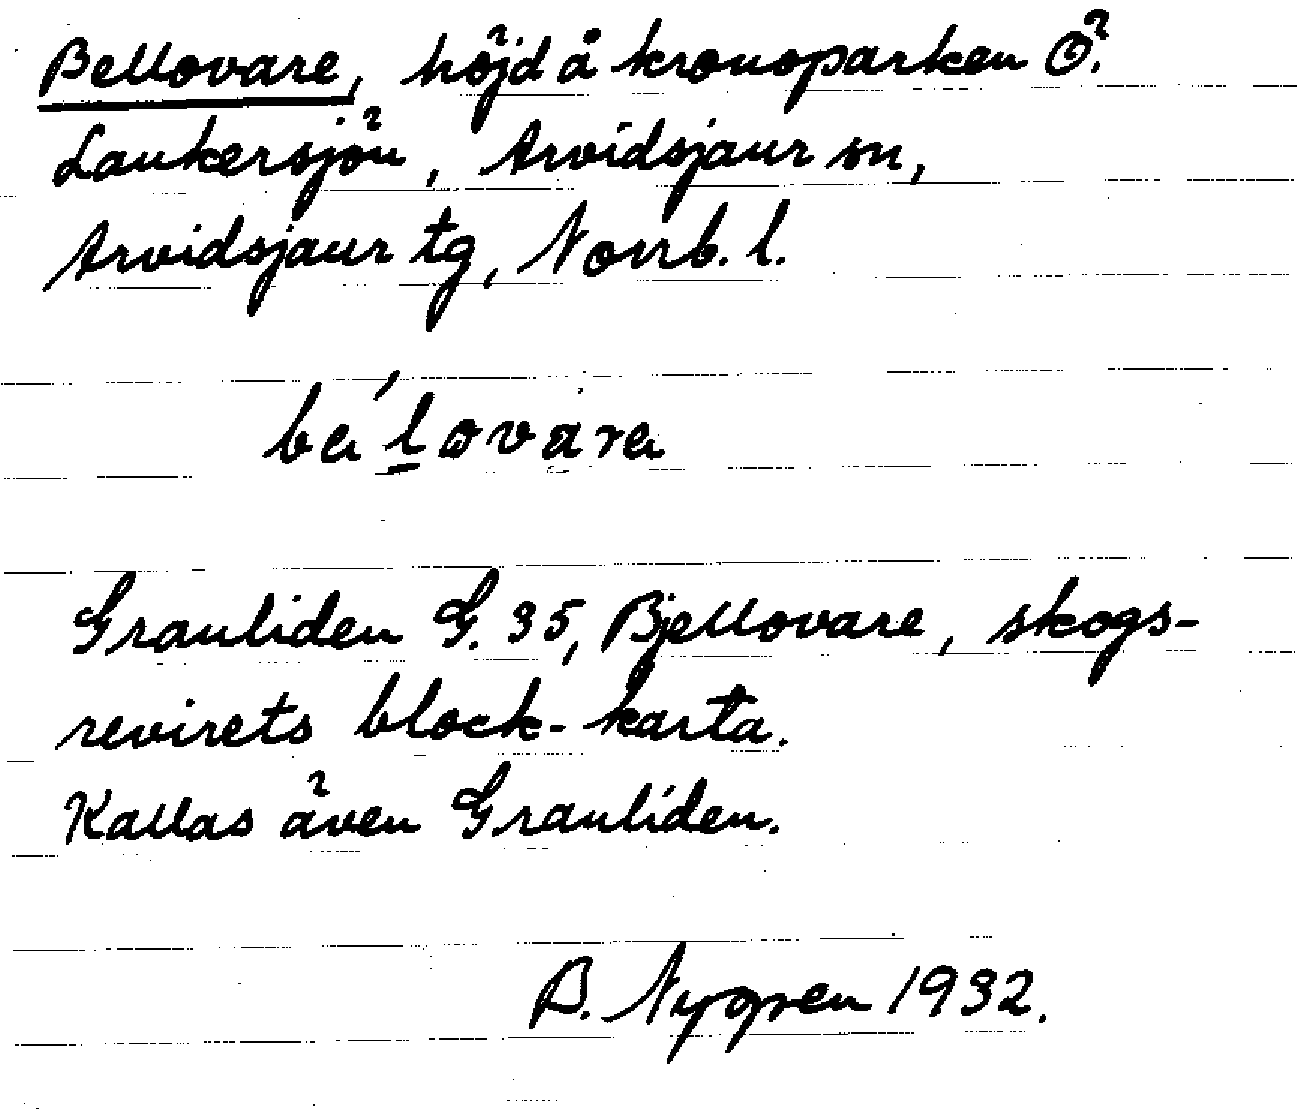 Bellovare, höjd å kronoparken Ö.
Laukersjön, Arvidsjaur sn,
Arvidsjaur tg, Norrb. l.
ba´l̲ovara
Granliden G. 35, Bjellovare, skogs-
revirets block-karta.
Kallas även Granliden.
B. Nygren 1932.